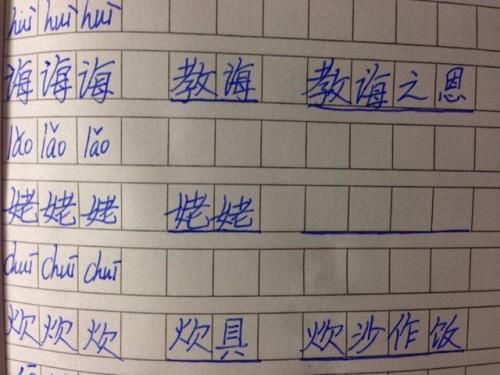 huì huì huì
诲 诲 诲 教诲 教诲之恩
lǎo lǎo lǎo
姥 姥 姥 姥姥
chuī chuī chuī
炊 炊 炊 炊具 炊沙作饭